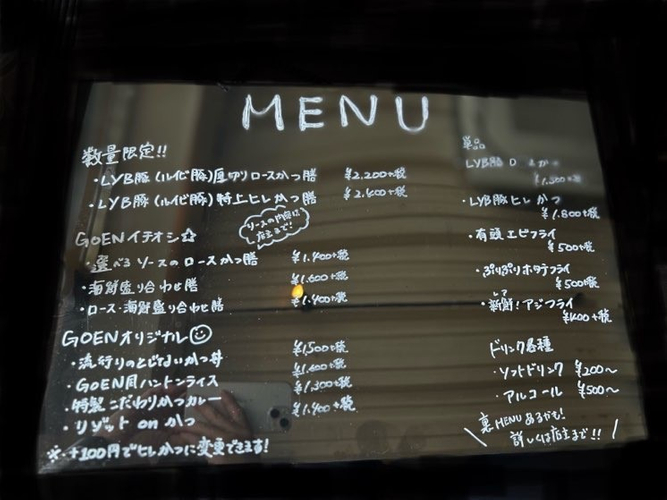 MENU
数量限定!!
・LYB豚(ルイビ豚)厚切りロースかつ膳 ¥2.200+税
・LYB豚(ルイビ豚)特上ヒレかつ膳 ¥2.400+税
ソースの内容は
店主まで!
GOENイチオシ☆
・選べるソースのロースかつ膳 ¥1.400+税
・海鮮盛り合わせ膳 ¥1.600+税
・ロース・海鮮盛り合わせ膳 ¥1.400+税
GOENオリジナル☺
・流行りのとじないかつ丼 ¥1,500+税
・GOEN風ハントンライス ¥1.400+税
・特製こだわりかつカレー ¥1.300+税
・リゾット on かつ ¥1.400+税
※・+100円でヒレかつに変更できます!
単品
LYB豚ロースかつ
¥1.500+税
・LYB豚ヒレかつ
¥1.800+税
・有頭エビフライ
¥500+税
・ぷりぷりホタテフライ
¥500+税
・新鮮!アジフライ
¥400+税
ドリンク各種
・ソフトドリンク ¥200〜
・アルコール ¥500〜
\ 裏MENUあるかも!
詳しくは店主まで!! /